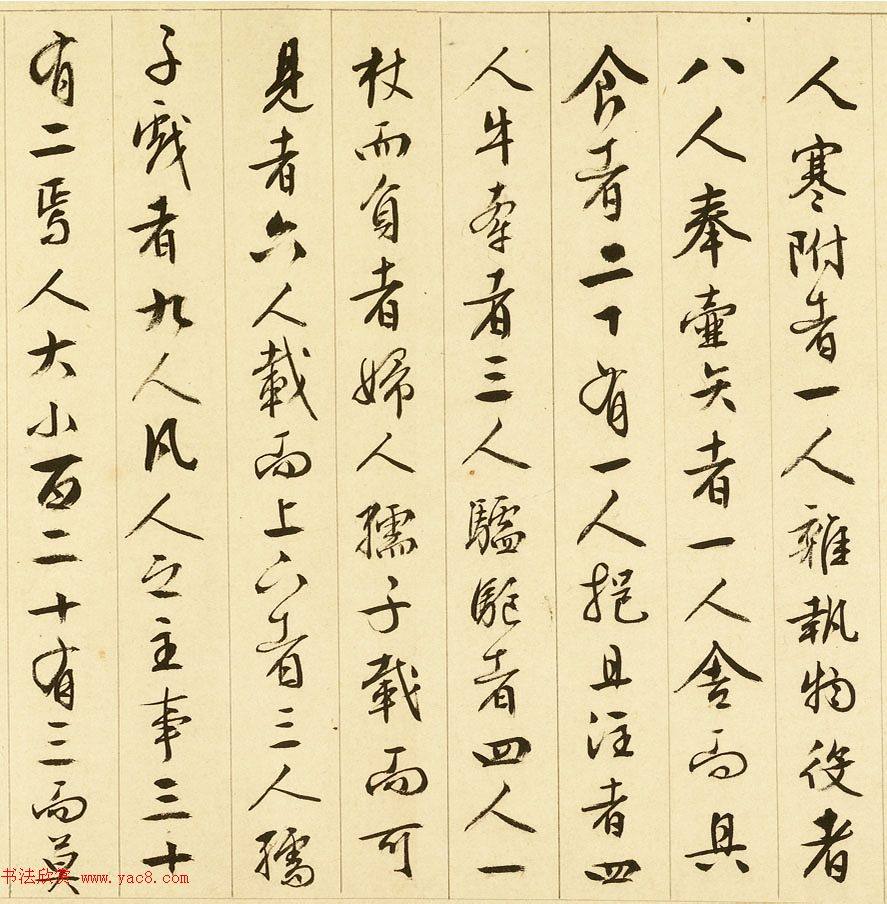 人寒附者一人雜執物役者
八人奉壷矢者一人舍而具
食者二丁有一人挹且注者四
人牛牽者三人驢驅者四人一
杖而負者婦人孺子載而可
見者六人載而上下者三人孺
子戲者九人凡人之主事三十
有二焉人大小百二十有三而莫
书法欣赏 www.yac8.com